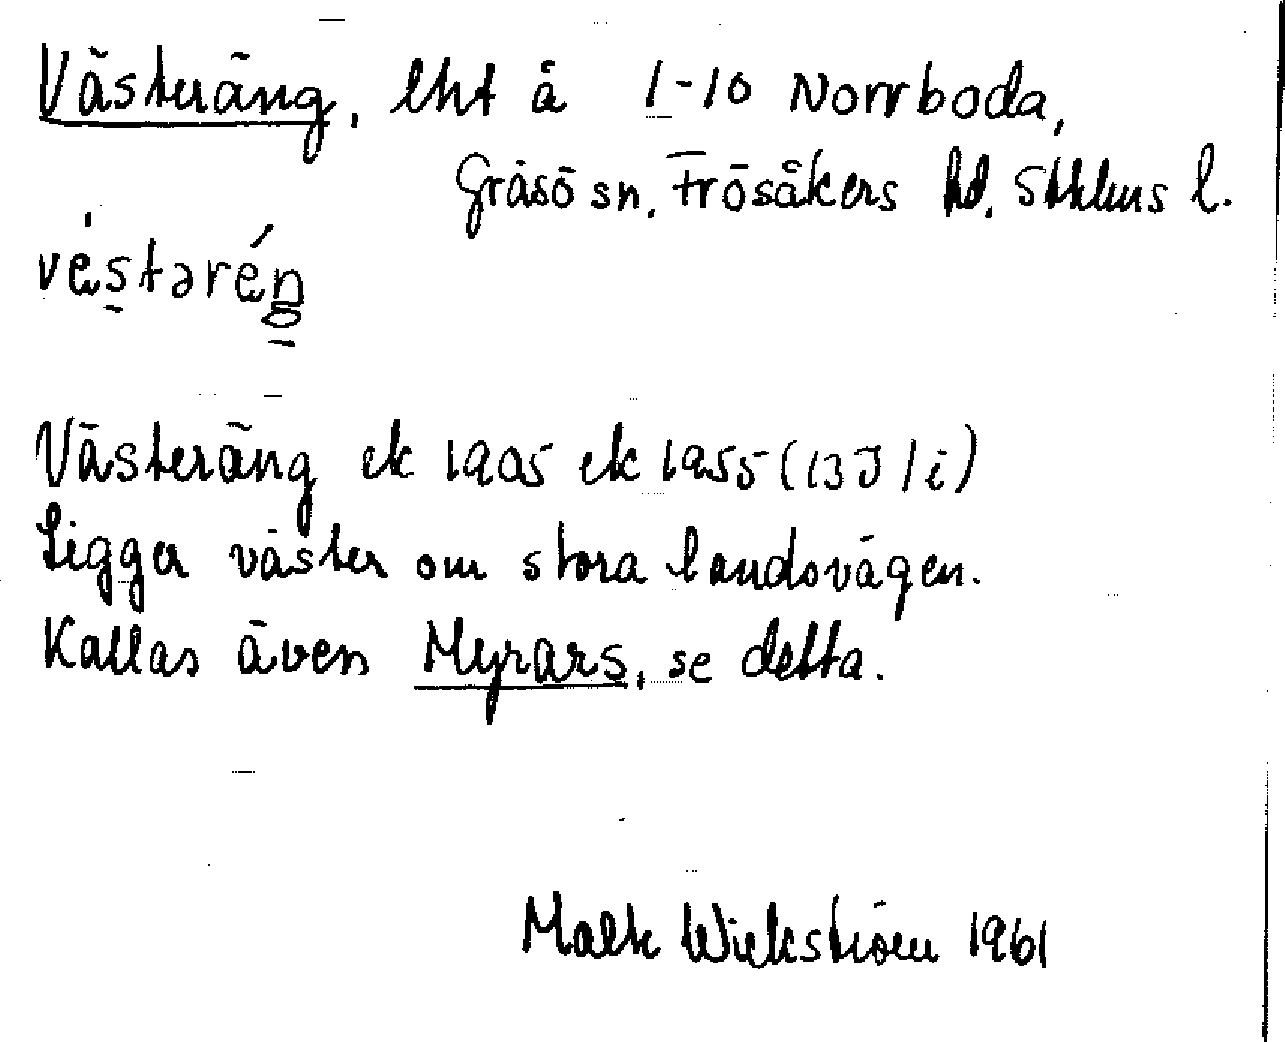 Västeräng, lht å 1-10 Norrboda,
Gräsö sn. Frösåkers hd. Sthlms l.
véstəréŋ
Västeräng ek 1905 ek 1955 (13J 1 i)
Ligger väster om stora landsvägen.
Kallas även Myrars, se detta.
Malte Wickström 1961